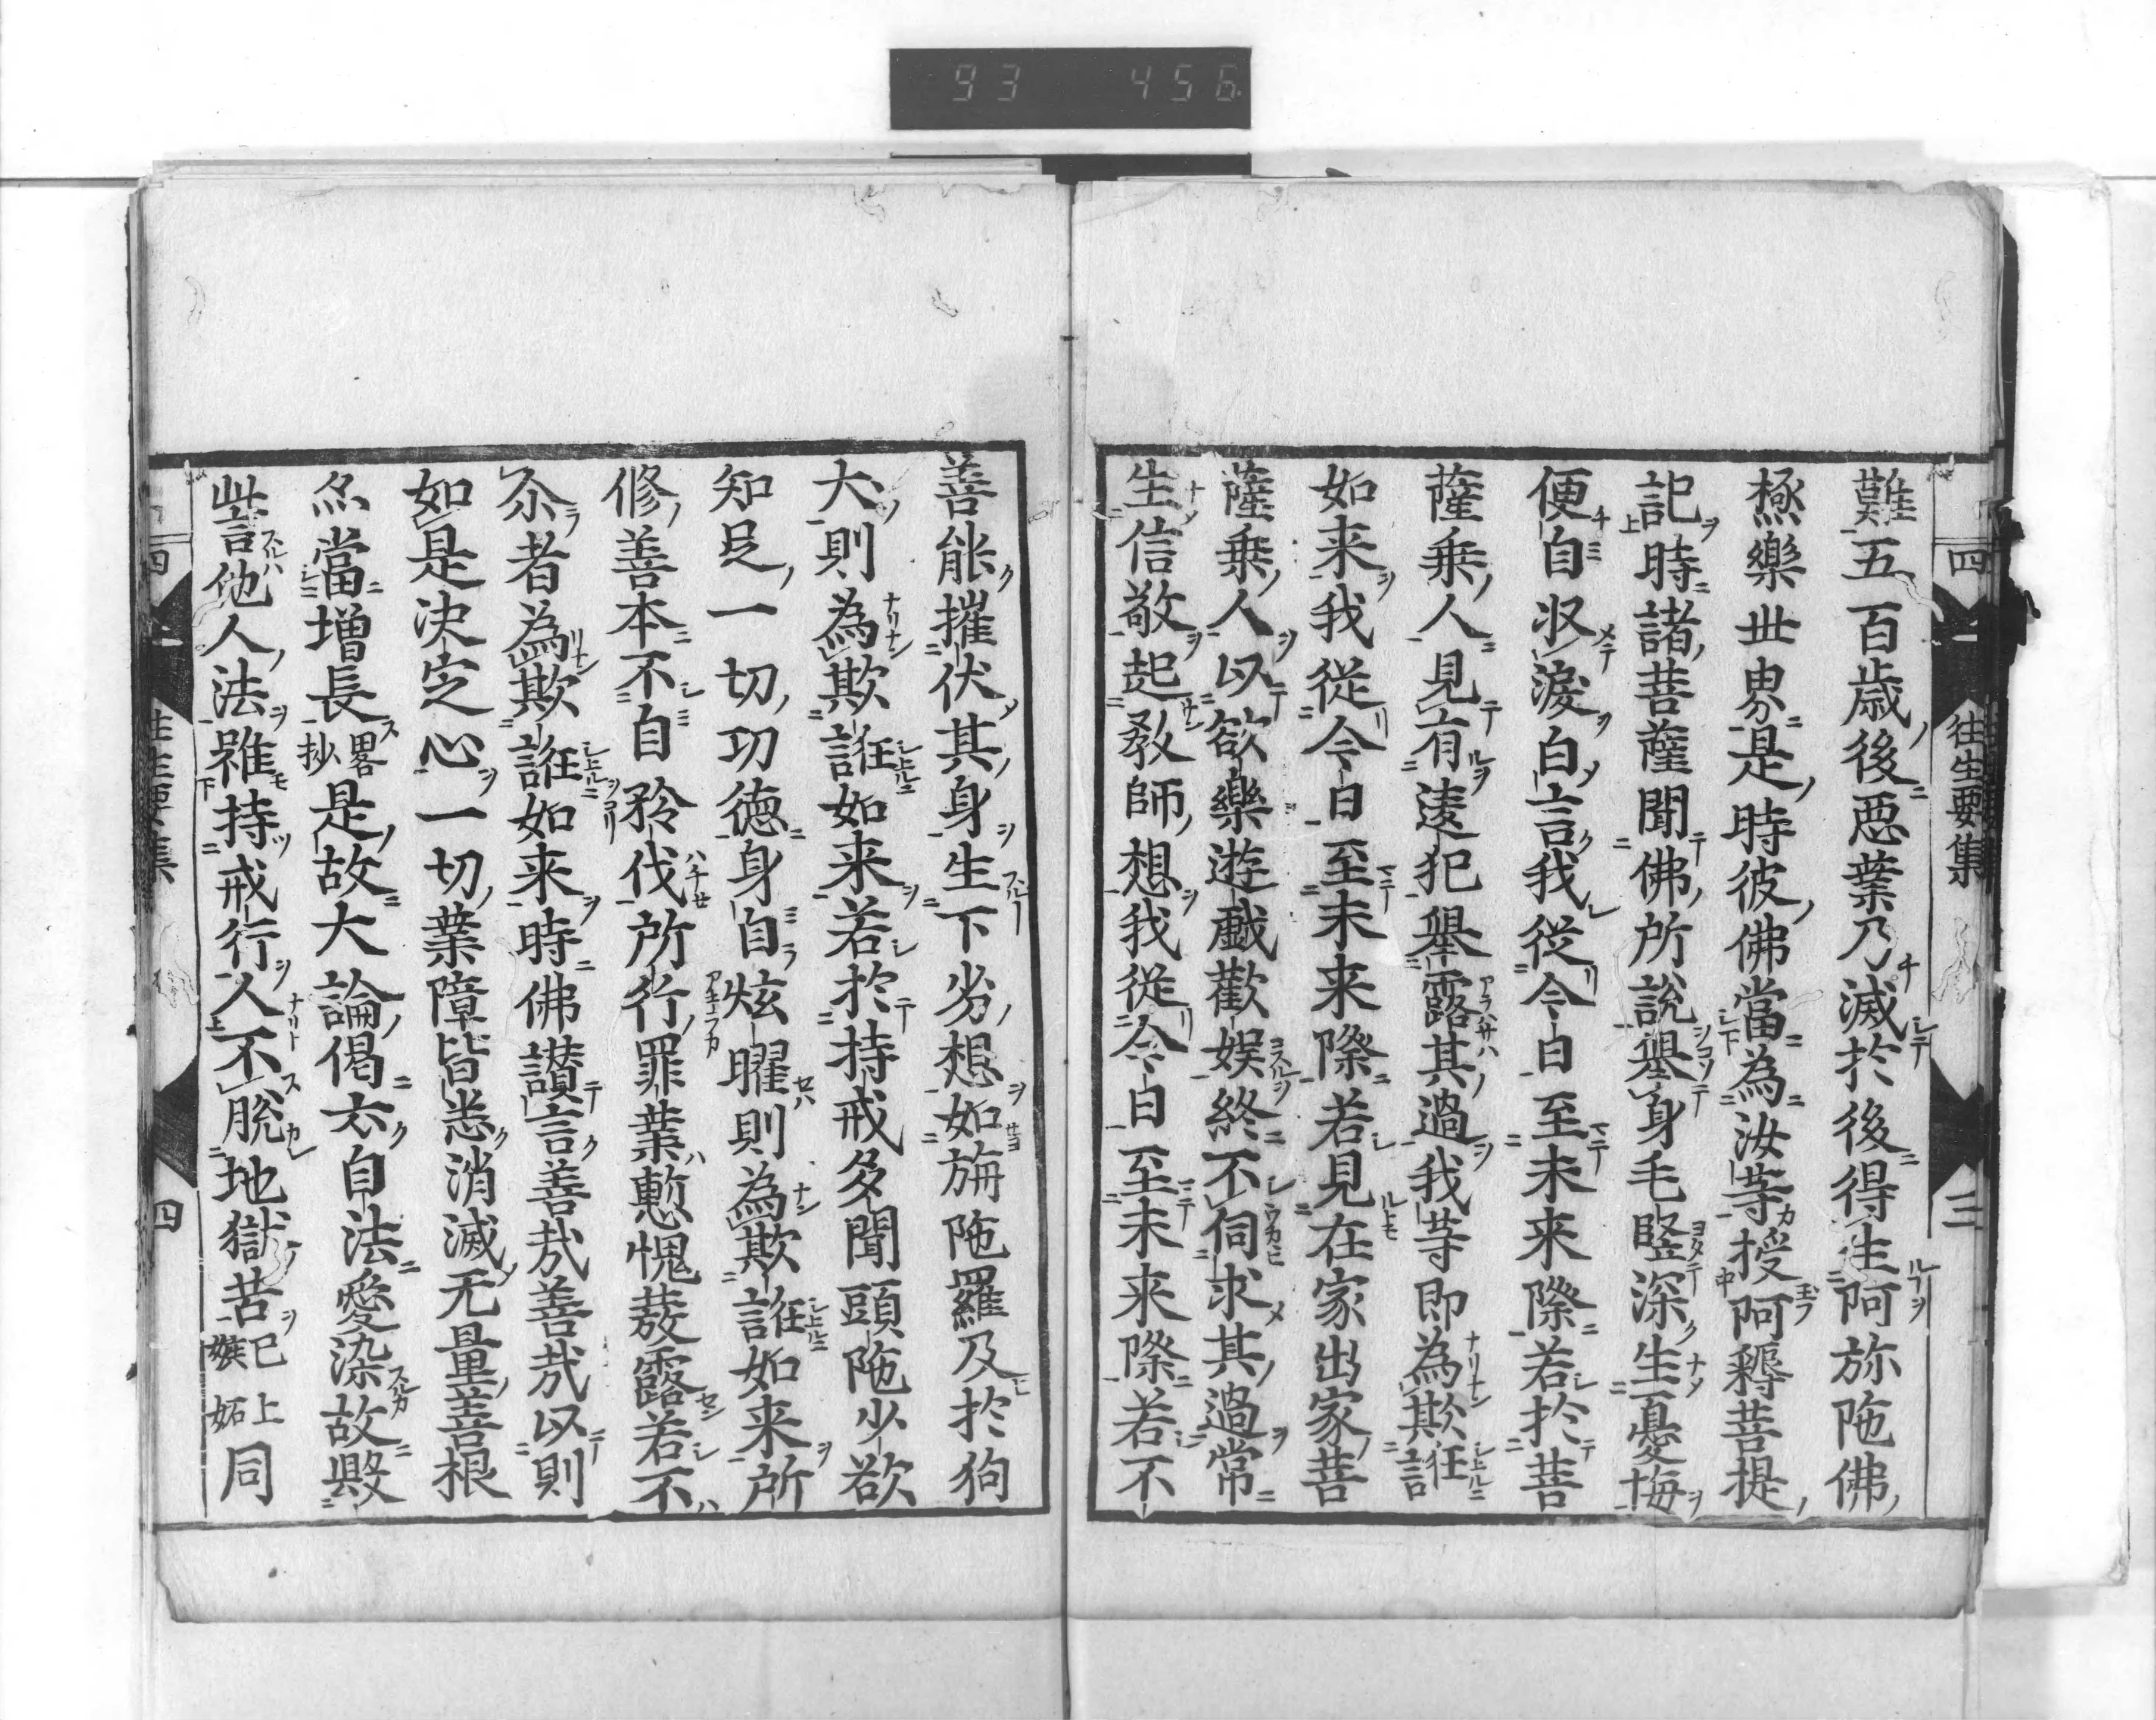 93 456
四 往生要集 三
難五百歳後惡業乃滅於後得生阿弥陁佛
極樂世界是時彼佛當為汝等授阿耨菩提
記時諸菩薩聞佛所說舉身毛竪深生憂悔
便自収淚白言我從今日至未来際若於菩
薩乗人見有違犯舉露其過我等即為欺誑
如来我從今日至未来際若見在家出家菩
薩乗人以欲樂遊戯歡娯終不伺求其過常
生信敬起教師想我從今日至未来際若不
善能摧伏其身生下劣想如旃陁羅及於狗
犬則為欺誑如来若於持戒多聞頭陁少欲
知足一切功德身自炫曜則為欺誑如来所
修善本不自矜伐所行罪業慙愧發露若不
尒者為欺誑如来時佛讃言善哉善哉以
如是決定心一切業障皆悉消滅无量善根
亦當増長畧抄是故大論偈云自法愛染故毀
呰他人法雖持戒行人不脫地獄苦已上嫉妬同
四 往生要集 四